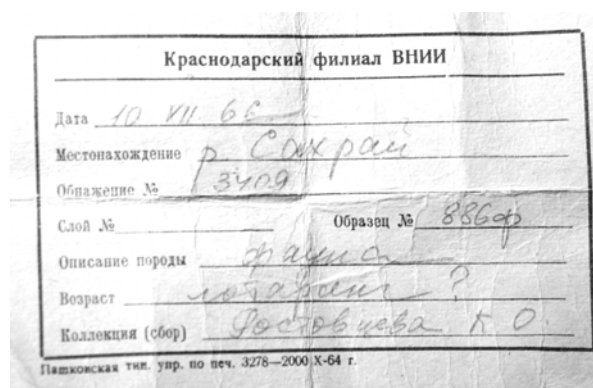 Краснодарский филиал ВНИИ
Дата 10 XII 66
Местонахождение р. Сахрай
Обнажение № 3409
Слой № Образец № 886ф
Описание породы фауна
Возраст лотаринг ?
Коллекция (сбор) Ростовцева К О.
Пашковская тип. упр. по печ. 3278—2000 X-64 г.